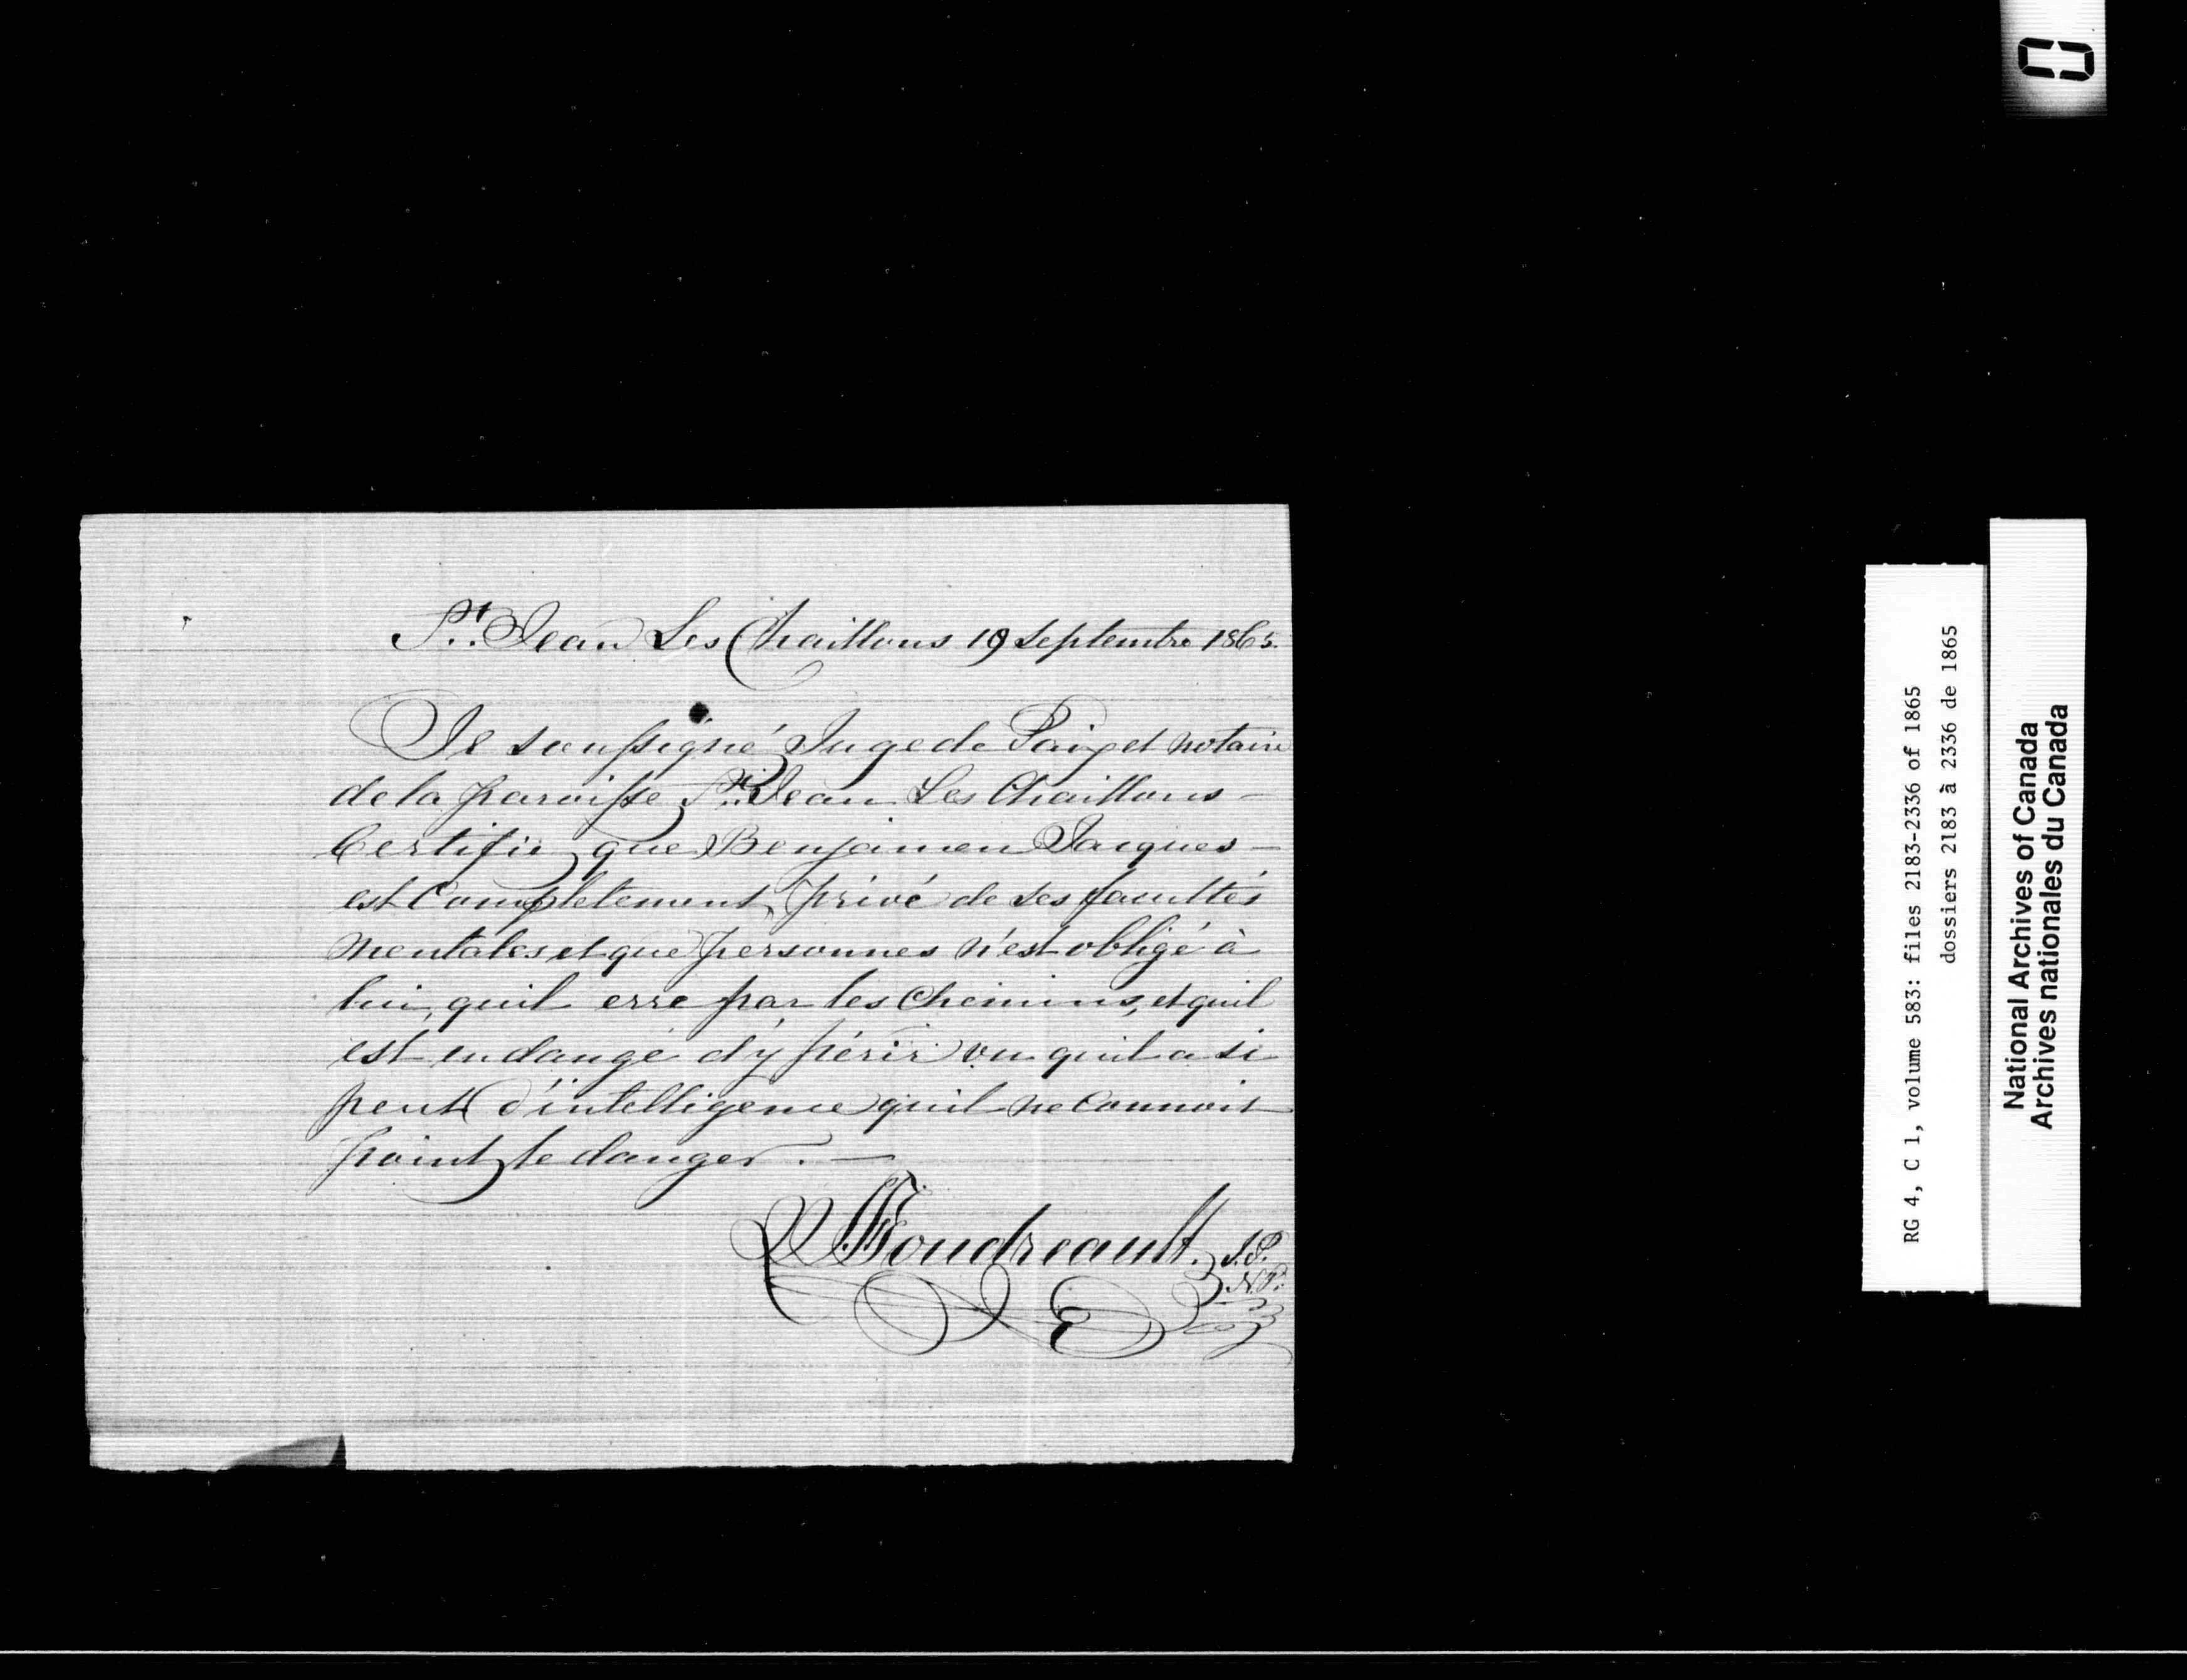 St. Jean Les Chaillons 19 Septembre 1865.
Je soussigné Juge de Paix et notaire
de la paroisse St. Jean Les Chaillons –
Certifie que Benjamen Jacques –
est Completement privé de ses facultés
mentales et que personnes n'est obligé à
lui, quil erre par les Chemins, et quil
est en dangé d'y périr vu quil a si
peut d'intelligence quil ne Connoit
point le danger. —
Boudreault. J.P.
N.P.
RG 4, C 1, volume 583: files 2183-2336 of 1865
dossiers 2183 à 2336 de 1865
National Archives of Canada
Archives nationales du Canada